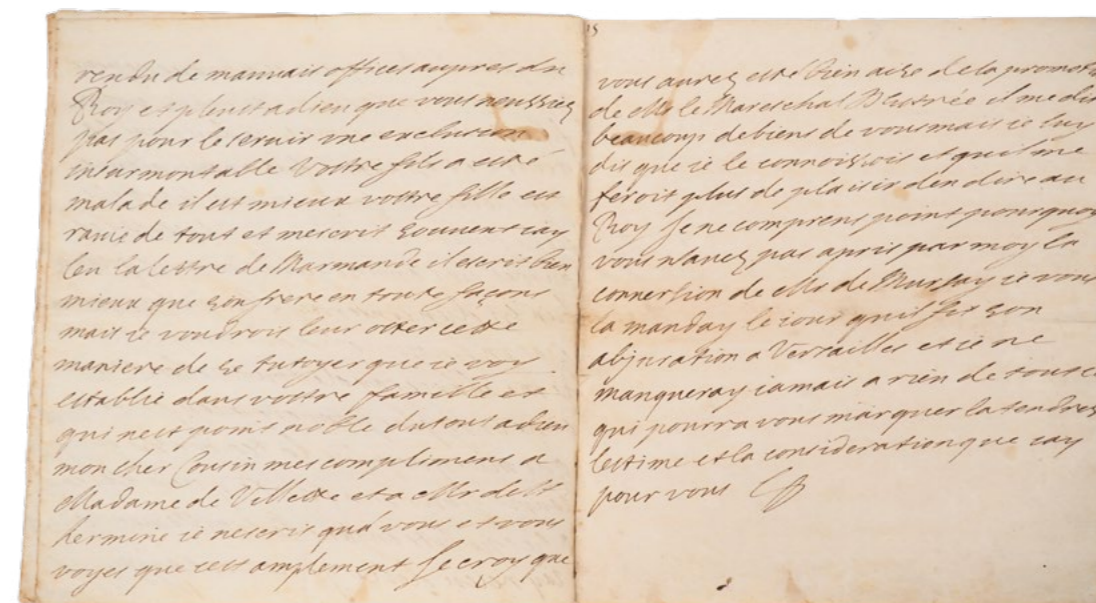 rendu de mauvais offices aupres du
Roy et pleust a dieu que vous neussiez
pas pour le servir une exclusion
insurmontable Vostre fils a esté
malade il est mieux vostre fille est
ravie de tout et mescrit souvent iay
leu la lettre de Marmande il escrit bien
mieux que son frere en toute façons
mais ie voudrois leur oster cette
maniere de se tutoyer que ie voy
establie dans vostre famille et
qui nest point noble du tout adieu
mon cher Cousin mes complimens a
Madame de Villette et a Mr de St
hermine ie nescris qua vous et vous
voyes que cest amplement Je croy que
15
vous aurez esté bien aise de la promot
de Mr le Mareschal Destrée il me dit
beaucoup de biens de vous mais ie luy
dis que ie le connoissois et quil me
feroit plus de plaisir den dire au
Roy Je ne comprens point pourquoy
vous navez pas apris par moy la
conversion de Mr de Mursay ie vous
la manday le iour quil fit son
abjuration a Versailles et ie ne
manqueray iamais a rien de tout c
qui pourra vous marquer la tendres
lestime et la consideration que iay
pour vous